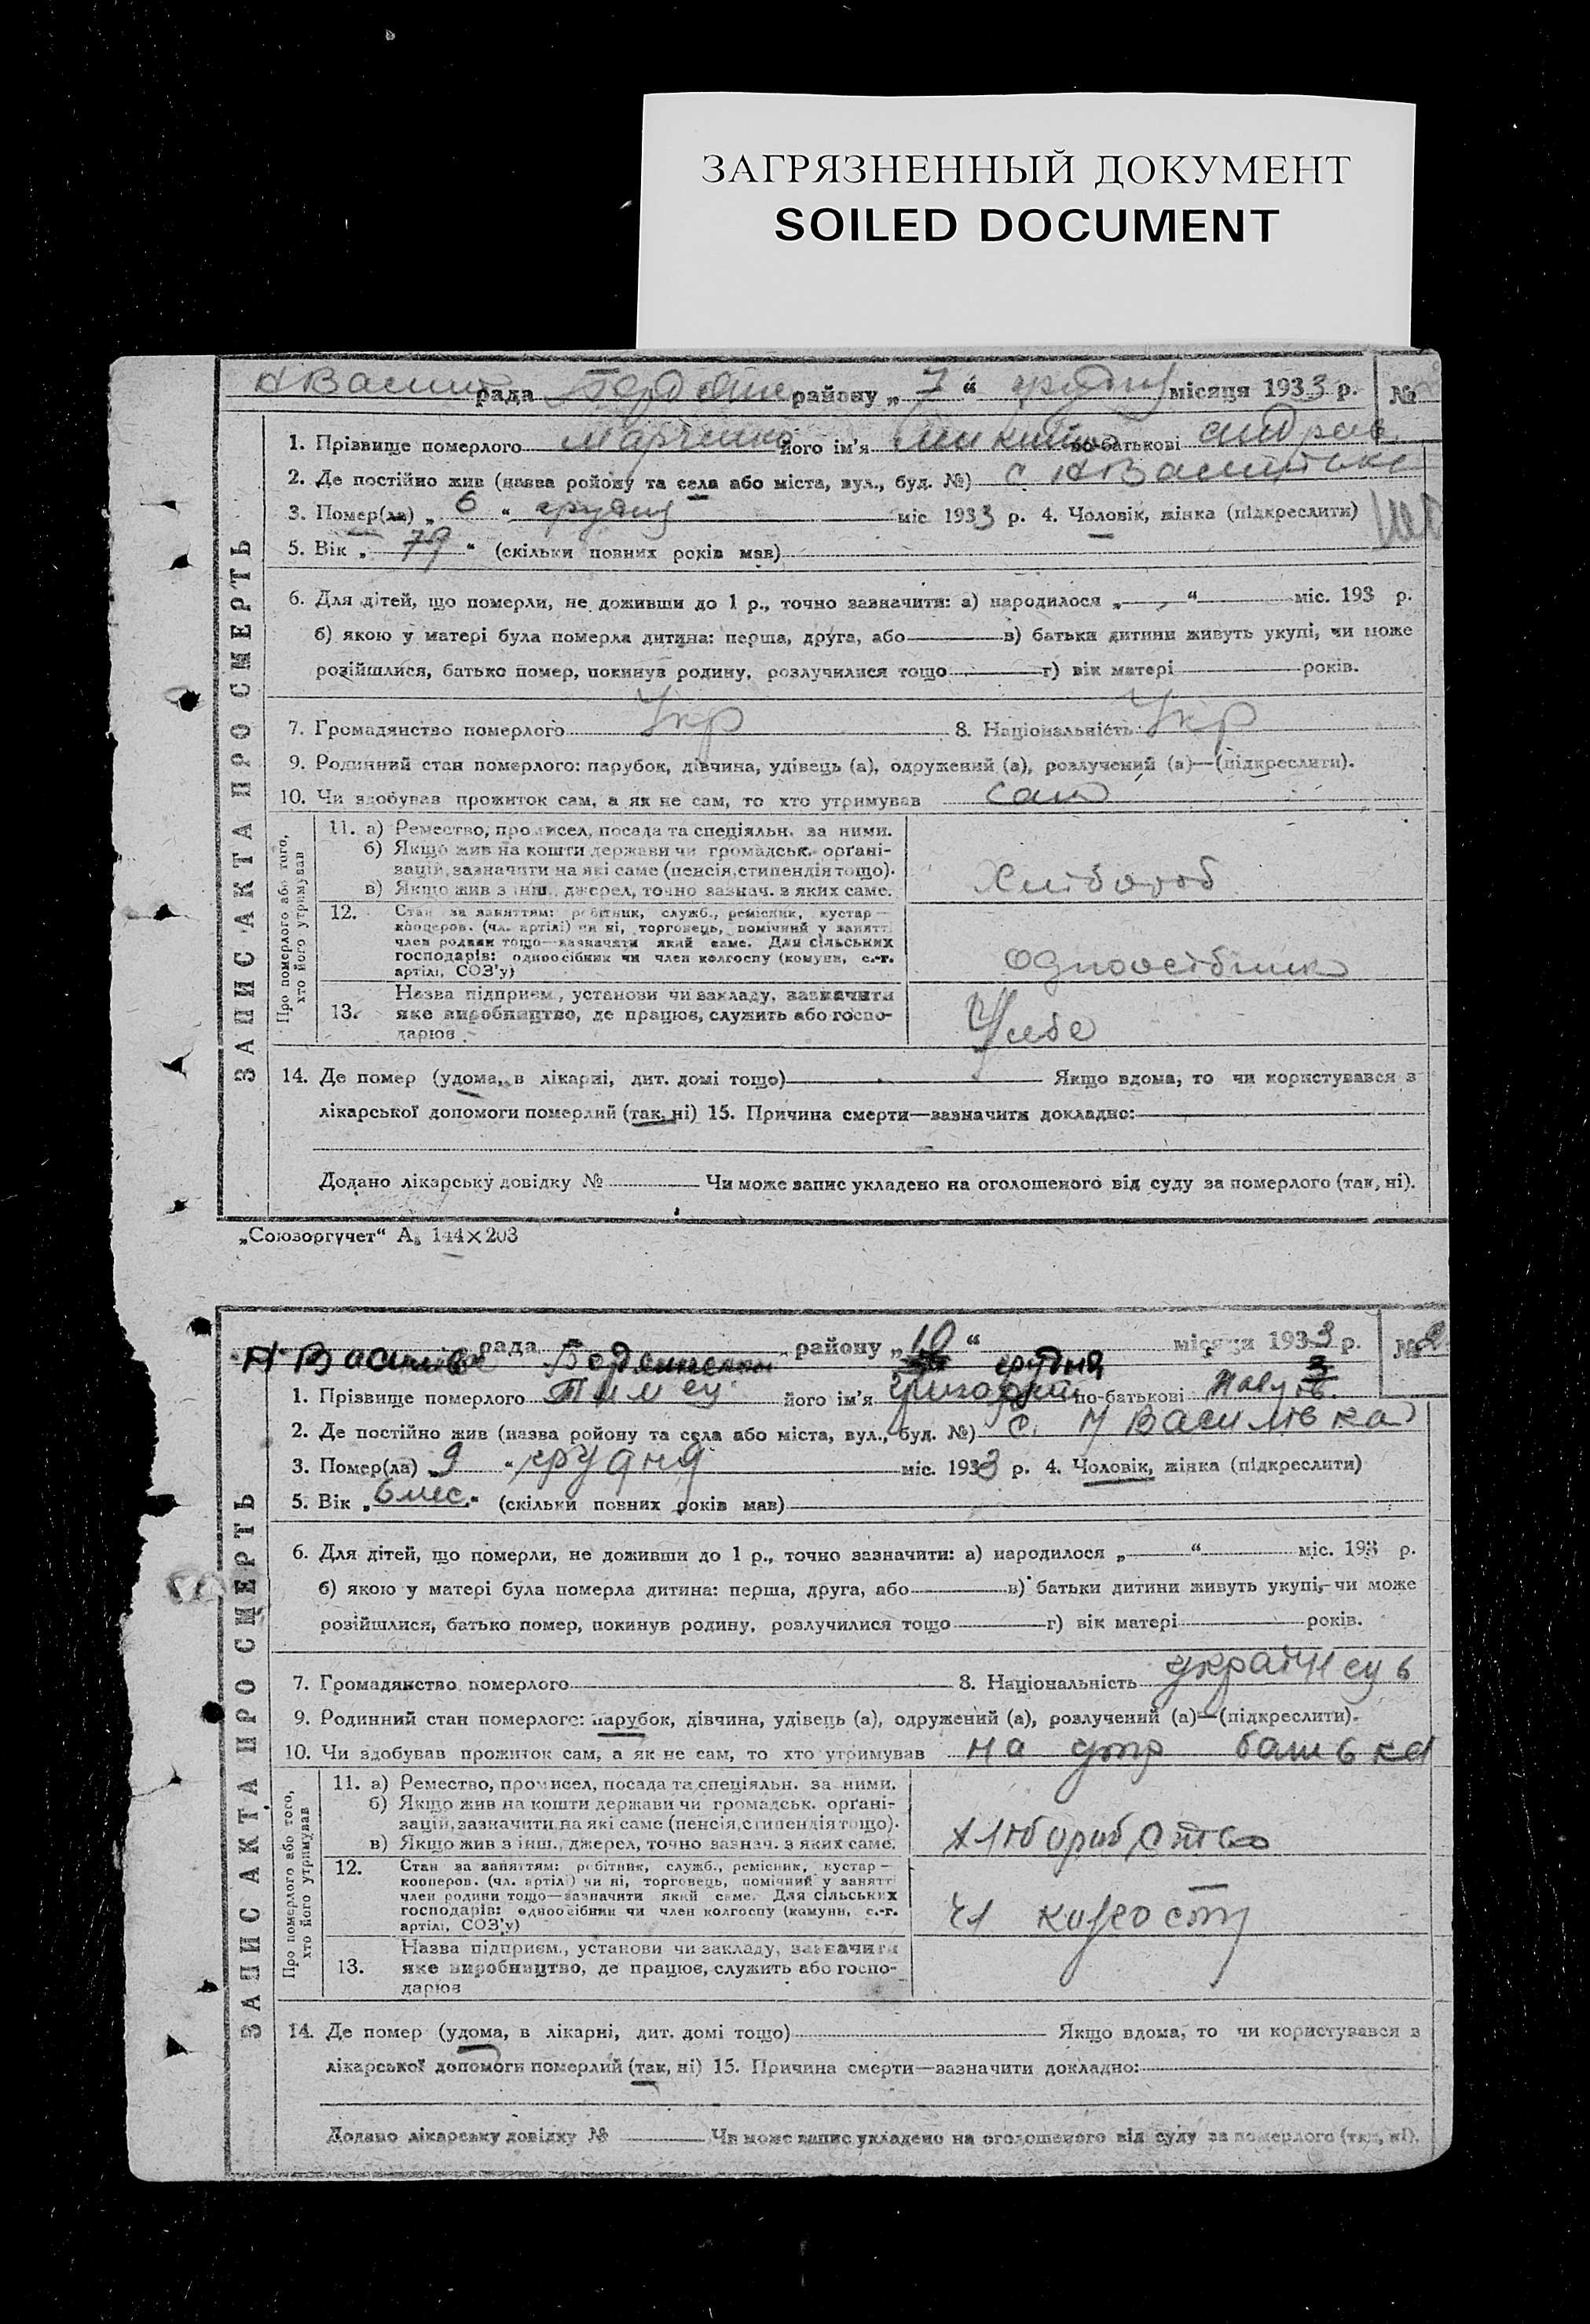 ЗАГРЯЗНЕННЫЙ ДОКУМЕНТ
SOILED DOCUMENT
рада району „ 7 “ грудня місяця 1933 р. №
1. Прізвище померлого Марченко його ім'я Микита по-батькові Андрєєв
2. Де постійно жив (назва ройону та села або міста, вул., буд. №) с НВасилівка
3. Помер(ла) „ 6 “ грудня міс 1933 р. 4. Чоловік, жінка (підкреслити)
5. Вік „ 79 “ (скільки повних років мав)
6. Для дітей, що померли, не доживши до 1 р., точно зазначити: а) народилося „ “ міс. 193 р.
б) якою у матері була померла дитина: перша, друга, або в) батьки дитини живуть укупі, чи може
розійшлися, батько помер, покинув родину, розлучилися тощо г) вік матері років.
7. Громадянство померлого Укр 8. Національність Укр
9. Родинний стан померлого: парубок, дівчина, удівець (а), одружений (а), розлучений (а)—(підкреслити).
10. Чи здобував прожиток сам, а як не сам, то хто утримував сам
ЗАПИС АКТА ПРО СМЕРТЬ
Про померлого або того, хто його утримував
11. а) Ремество, промисел, посада та спеціяльн. за ними.
б) Якщо жив на кошти держави чи громадськ. орґані-
зацій, зазначити на які саме (пенсія, стипендія тощо).
в) Якщо жив з інш. джерел, точно зазнач. з яких саме.
Хлібороб
12. Стан за заняттям: робітник, служб., ремісник, кустар—
кооперов. (чл. артілі) чи ні, торговець, помічний у занятті
член родини тощо—зазначити який саме. Для сільських
господарів: одноосібник чи член колгоспу (комуни, с.-г.
артілі, СОЗ'у)
одноосібник
13. Назва підприєм., установи чи закладу, зазначити
яке виробництво, де працює, служить або госпо-
дарює
У себе
14. Де помер (удома, в лікарні, дит. домі тощо) Якщо вдома, то чи користувався з
лікарської допомоги померлий (так, ні) 15. Причина смерти—зазначити докладно:
Додано лікарську довідку № Чи може запис укладено на оголошеного від суду за померлого (так, ні).
„Союзоргучет“ А5 144×203
Н Василівс рада району „ 10 “ грудня місяця 1933 р. № 2
1. Прізвище померлого його ім'я Григорій по-батькові
2. Де постійно жив (назва ройону та села або міста, вул., буд. №) с. Н Василівка
3. Помер(ла) „ 9 “ грудня міс. 1933 р. 4. Чоловік, жінка (підкреслити)
5. Вік „ 6 мес. “ (скільки повних років мав)
6. Для дітей, що померли, не доживши до 1 р., точно зазначити: а) народилося „ “ міс. 193 р.
б) якою у матері була померла дитина: перша, друга, або в) батьки дитини живуть укупі, чи може
розійшлися, батько помер, покинув родину, розлучилися тощо г) вік матері років.
7. Громадянство померлого 8. Національність українець
9. Родинний стан померлого: парубок, дівчина, удівець (а), одружений (а), розлучений (а)—(підкреслити).
10. Чи здобував прожиток сам, а як не сам, то хто утримував на утр батька
ЗАПИС АКТА ПРО СМЕРТЬ
Про померлого або того, хто його утримував
11. а) Ремество, промисел, посада та спеціяльн. за ними.
б) Якщо жив на кошти держави чи громадськ. орґані-
зацій, зазначити на які саме (пенсія, стипендія тощо).
в) Якщо жив з інш. джерел, точно зазнач. з яких саме.
12. Стан за заняттям: робітник, служб., ремісник, кустар—
кооперов. (чл. артілі) чи ні, торговець, помічний у занятті
член родини тощо—зазначити який саме. Для сільських
господарів: одноосібник чи член колгоспу (комуни, с.-г.
артілі, СОЗ'у)
чл колгоспу
13. Назва підприєм., установи чи закладу, зазначити
яке виробництво, де працює, служить або госпо-
дарює
14. Де помер (удома, в лікарні, дит. домі тощо) Якщо вдома, то чи користувався з
лікарської допомоги померлий (так, ні) 15. Причина смерти—зазначити докладно:
Додано лікарську довідку № Чи може запис укладено на оголошеного від суду за померлого (так, ні).